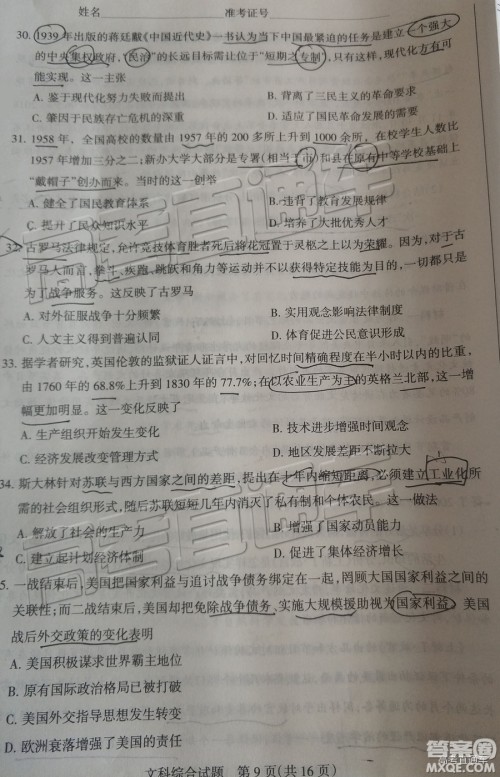 姓名 准考证号
30. 1939年出版的蒋廷黻《中国近代史》一书认为当下中国最紧迫的任务是建立一个强大
的中央集权政府，“民治”的长远目标需让位于“短期之专制”，只有这样，现代化方有可
能实现。这一主张
A. 鉴于现代化努力失败而提出 B. 背离了三民主义的革命要求
C. 肇因于民族存亡危机的深重 D. 适应了国民革命发展的需求
31. 1958年，全国高校的数量由1957年的200多所上升到1000余所，在校学生人数比
1957年增加三分之二；新办大学大部分是专署（相当于市）和县在原有中等学校基础上
“戴帽子”创办而来。当时的这一创举
A. 健全了国民教育体系 B. 违背了教育发展规律
C. 提升了民众知识水平 D. 培养了大批优秀人才
32. 古罗马法律规定，允许竞技体育胜者死后将花冠置于灵柩之上以为荣耀。因为，对于古
罗马人而言，拳斗、疾跑、跳跃和角力等运动并不以获得特定技能为目的，一切都只是
为了战争服务。这反映了古罗马
A. 对外征服战争十分频繁 B. 实用观念影响法律制度
C. 人文主义得到普遍认同 D. 体育促进公民意识形成
33. 据学者研究，英国伦敦的监狱证人证言中，对回忆时间精确程度在半小时以内的比重，
由1760年的68.8%上升到1830年的77.7%；在以农业生产为主的英格兰北部，这一增
幅更加明显。这一变化反映了
A. 生产组织开始发生变化 B. 技术进步增强时间观念
C. 经济发展改变管理方式 D. 地区发展差距不断拉大
34. 斯大林针对苏联与西方国家之间的差距，提出在十年内缩短距离，必须建立工业化所
需的社会组织形式，随后苏联短短几年内消灭了私有制和个体农民。这一做法
A. 解放了社会的生产力 B. 增强了国家动员能力
C. 建立起计划经济体制 D. 促进了集体经济增长
5. 一战结束后，美国把国家利益与追讨战争债务绑定在一起，罔顾大国国家利益之间的
关联性；而二战结束后，美国却把免除战争债务、实施大规模援助视为国家利益。美国
战后外交政策的变化表明
A. 美国积极谋求世界霸主地位
B. 原有国际政治格局已被打破
C. 美国外交指导思想发生转变
D. 欧洲衰落增强了美国的责任
文科综合试题 第9页（共16页）
高考直通车
高考直通车
答案圈